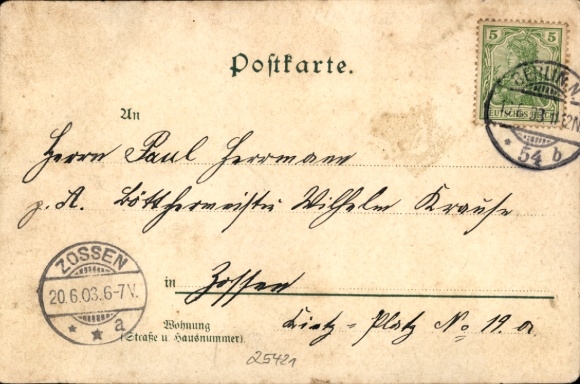 Postkarte.
5 5
BERLIN, N.
DEUTSCHES REICH
* 54 b
An
Herrn Paul Herrmann
p. A. Böttchermeister Wilhelm Krause
ZOSSEN
20.6.03.6-7V.
* * a
in Zossen
Wohnung
(Straße u. Hausnummer)
Kietz-Platz No 19. a.
25421